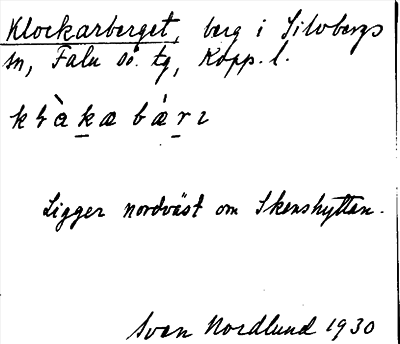 Klockarberget, berg i Silvbergs
sn, Falu sö. tg, Kopp. l.
Ligger nordväst om Skenshyttan.
Sven Nordlund 1930